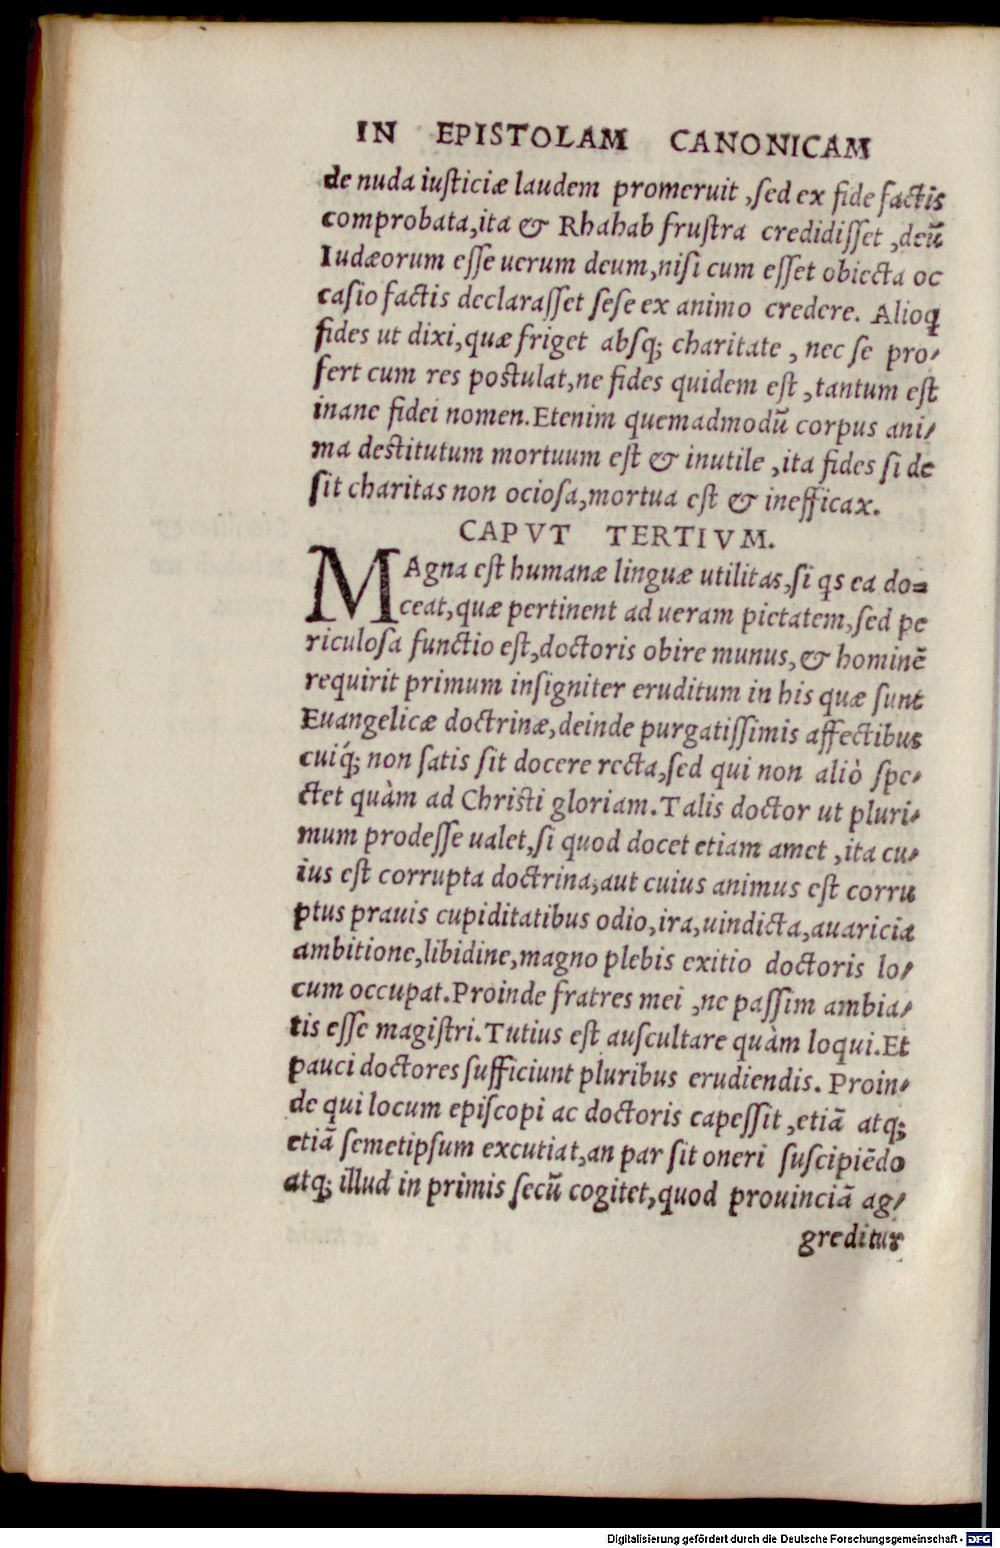 IN EPISTOLAM CANONICAM
de nuda iusticiæ laudem promeruit, sed ex fide factis
comprobata, ita & Rhahab frustra credidisset, deũ
Iudæorum esse uerum deum, nisi cum esset obiecta oc
casio factis declarasset sese ex animo credere. Alioq̃
fides ut dixi, quæ friget absq; charitate, nec se pro-
fert cum res postulat, ne fides quidem est, tantum est
inane fidei nomen. Etenim quemadmodũ corpus ani-
ma destitutum mortuum est & inutile, ita fides si de
sit charitas non ociosa, mortua est & inefficax.
CAPVT TERTIVM.
MAgna est humanæ linguæ utilitas, si qs ea do=
ceat, quæ pertinent ad ueram pietatem, sed pe
riculosa functio est, doctoris obire munus, & hominẽ
requirit primum insigniter eruditum in his quæ sunt
Euangelicæ doctrinæ, deinde purgatissimis affectibus
cuiq́; non satis sit docere recta, sed qui non aliò spe-
ctet quàm ad Christi gloriam. Talis doctor ut pluri-
mum prodesse ualet, si quod docet etiam amet, ita cu-
ius est corrupta doctrina, aut cuius animus est corru
ptus prauis cupiditatibus odio, ira, uindicta, auaricia
ambitione, libidine, magno plebis exitio doctoris lo-
cum occupat. Proinde fratres mei, ne passim ambia-
tis esse magistri. Tutius est auscultare quàm loqui. Et
pauci doctores sufficiunt pluribus erudiendis. Proin-
de qui locum episcopi ac doctoris capessit, etiã atq;
etiã semetipsum excutiat, an par sit oneri suscipiẽdo
atq; illud in primis secũ cogitet, quod prouinciã ag-
greditur
Digitalisierung gefördert durch die Deutsche Forschungsgemeinschaft - DFG